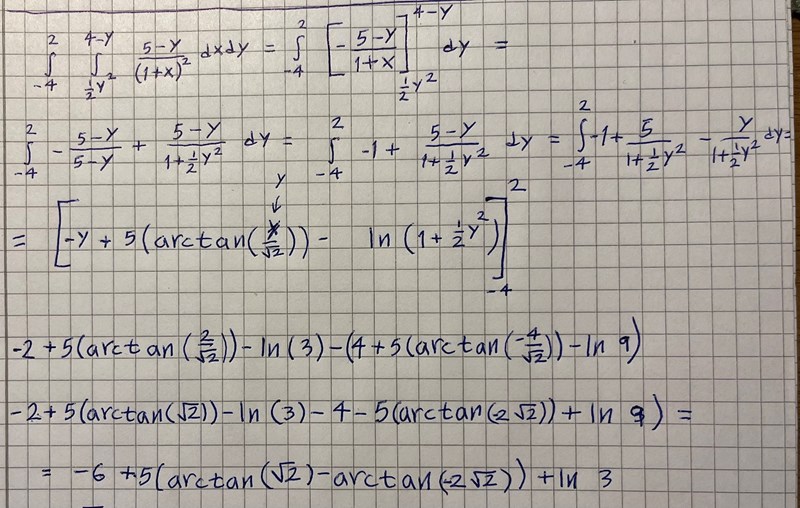 ∫_{-4}^{2} ∫_{½y²}^{4-y} (5-y)/(1+x)² dxdy = ∫_{-4}^{2} [-(5-y)/(1+x)]_{½y²}^{4-y} dy =
∫_{-4}^{2} -(5-y)/(5-y) + (5-y)/(1+½y²) dy = ∫_{-4}^{2} -1 + (5-y)/(1+½y²) dy = ∫_{-4}^{2} -1 + 5/(1+½y²) - y/(1+½y²) dy =
y
↓
= [-y + 5(arctan(x/√2)) - ln(1+½y²)]_{-4}^{2}
-2+5(arctan(2/√2))-ln(3)-(4+5(arctan(-4/√2))-ln 9)
-2+5(arctan(√2))-ln(3)-4-5(arctan(-2√2))+ln 9) =
= -6 +5(arctan(√2)-arctan(-2√2))+ln 3